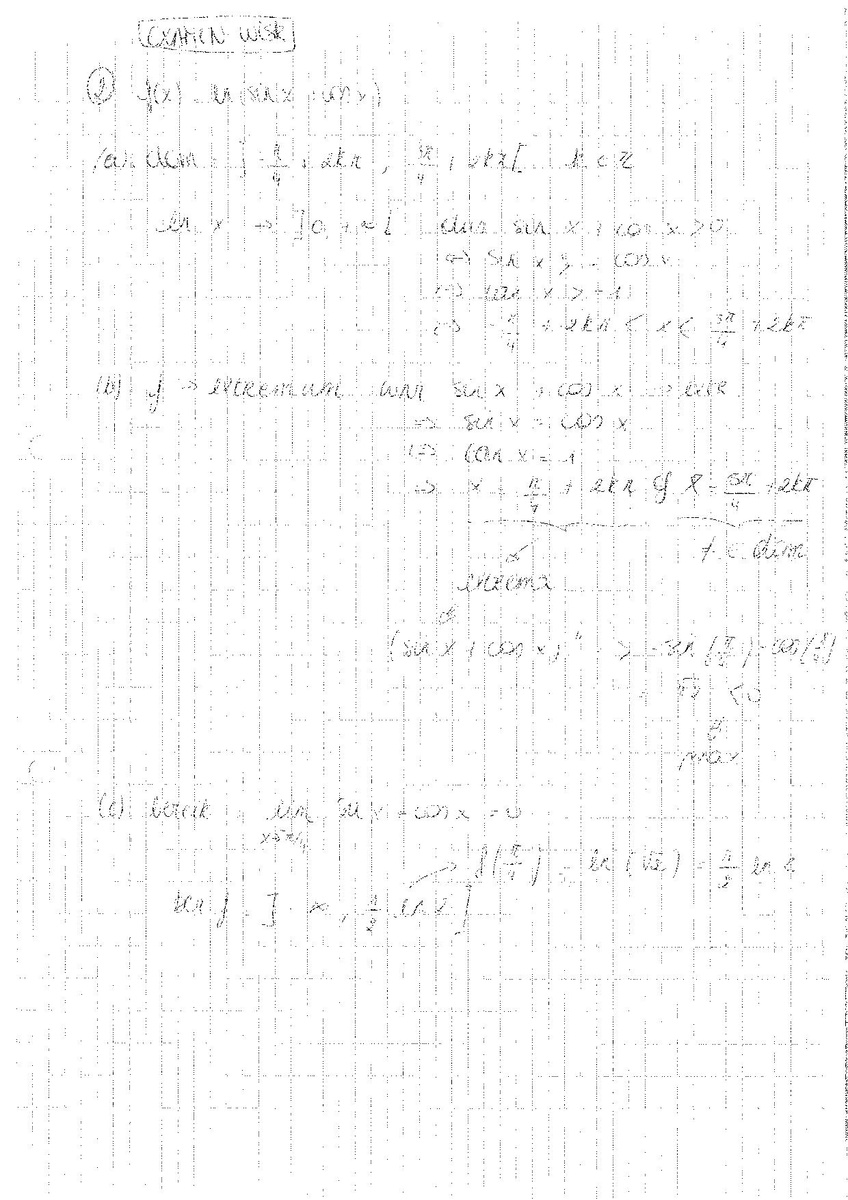 EXAMEN WISK
② f(x) = ln(sin x + cos x)
(a) dom = ]-π/4 + 2kπ, 3π/4 + 2kπ[ k ∈ Z
ln x → ]0, +∞[ dus sin x + cos x > 0
⇔ sin x > - cos x
⇔ tan x > -1
⇔ -π/4 + 2kπ < x < 3π/4 + 2kπ
(b) f → extremum wnr sin x + cos x → extr
⇒ sin x = cos x
⇔ tan x = 1
⇒ x = π/4 + 2kπ of x = 5π/4 + 2kπ
∉ dom
extrema
(sin x + cos x)" → -sin(π/4) - cos(π/4)
= -√2 < 0
max
(c) bereik: lim x→3π/4 sin x + cos x = 0
→ f(π/4) = ln(√2) = 1/2 ln 2
ber f = ]-∞, 1/2 ln 2]